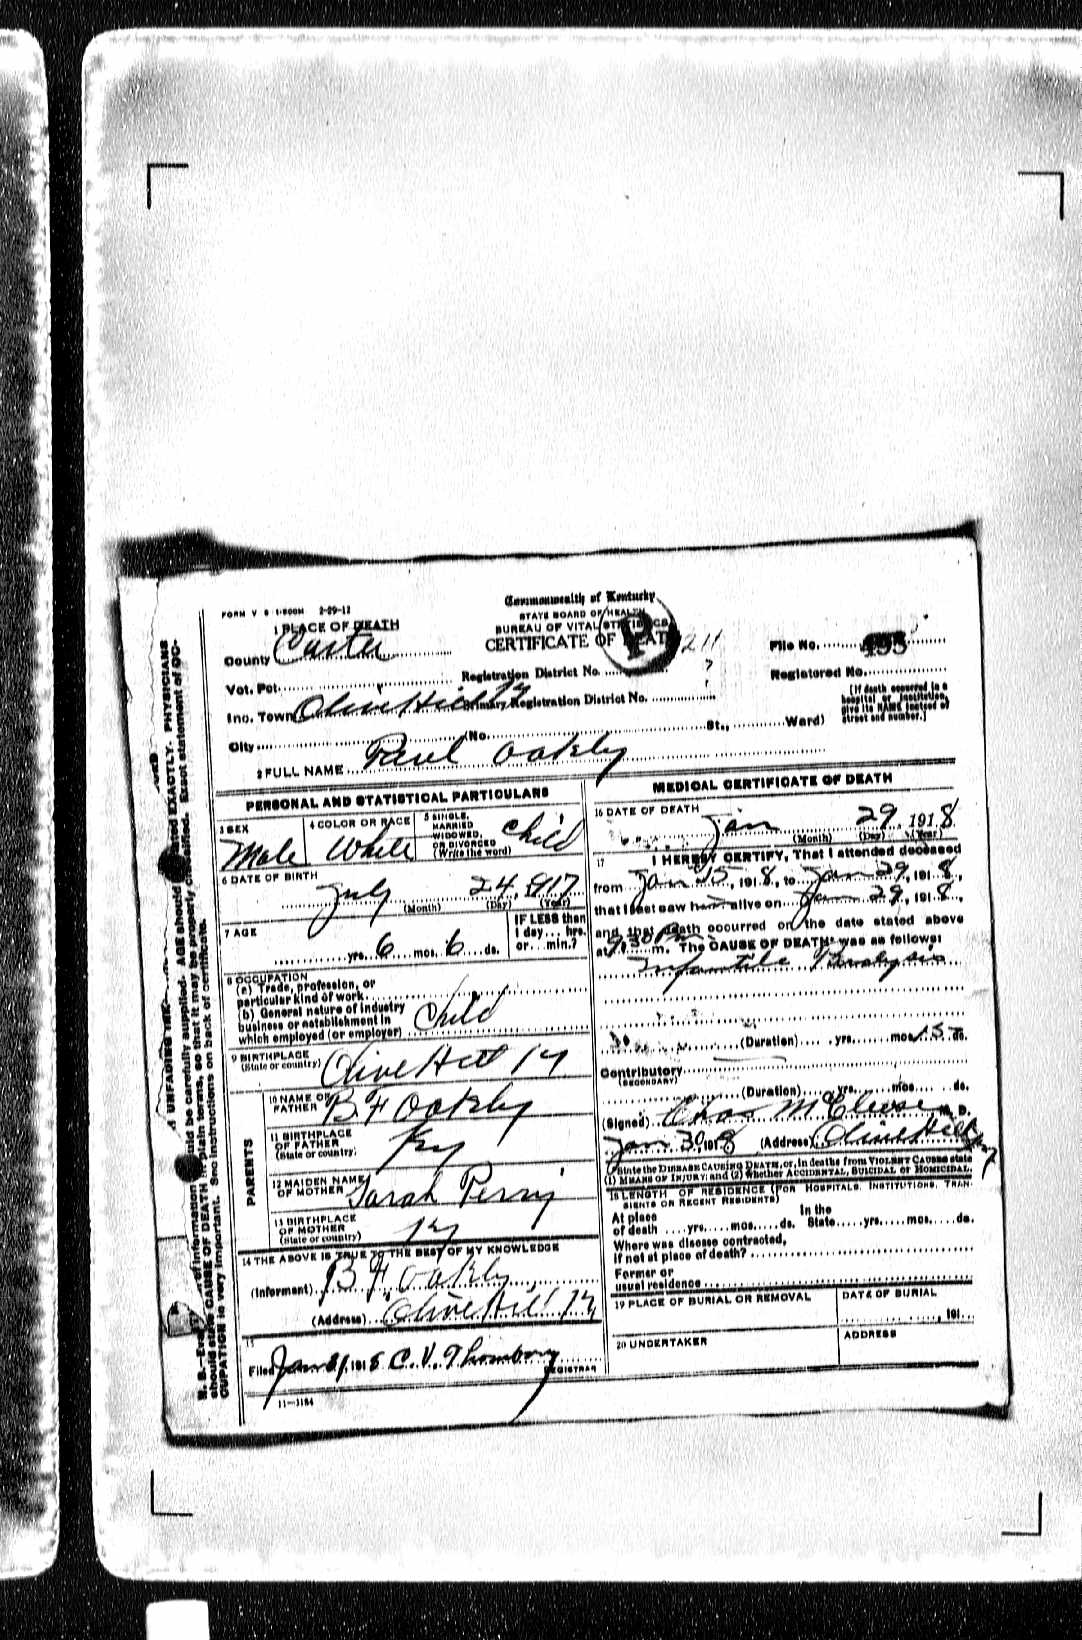 FORM V S 1-500M 2-29-12
Commonwealth of Kentucky
STATE BOARD OF HEALTH
BUREAU OF VITAL STATISTICS
CERTIFICATE OF DEATH
P
211
File No. 495
Registered No.
1 PLACE OF DEATH
County Carter
Vot. Pct.
Registration District No. ?
Inc. Town Olive Hill Ky
Primary Registration District No. ?
City
(No.
St.,
Ward)
[If death occurred in a
hospital or institution,
give its NAME instead of
street and number.]
2 FULL NAME Paul Oakley
PERSONAL AND STATISTICAL PARTICULARS
3 SEX
Male
4 COLOR OR RACE
White
5 SINGLE,
MARRIED
WIDOWED,
OR DIVORCED
(Write the word)
Child
6 DATE OF BIRTH
July 24, 1917
(Month) (Day) (Year)
7 AGE
yrs. 6 mos. 6 ds.
IF LESS than
1 day... hrs.
or... min.?
8 OCCUPATION
(a) Trade, profession, or
particular kind of work
(b) General nature of industry
business or establishment in
which employed (or employer)
Child
9 BIRTHPLACE
(State or country)
Olive Hill Ky
PARENTS
10 NAME OF
FATHER
B F Oakley
11 BIRTHPLACE
OF FATHER
(State or country)
Ky
12 MAIDEN NAME
OF MOTHER
Sarah Perry
13 BIRTHPLACE
OF MOTHER
(State or country)
Ky
14 THE ABOVE IS TRUE TO THE BEST OF MY KNOWLEDGE
(Informant) B F Oakley
(Address) Olive Hill Ky
15
Filed Jan 31, 1918 C. V. Thornbory
REGISTRAR
11-3184
MEDICAL CERTIFICATE OF DEATH
16 DATE OF DEATH
Jan 29, 1918
(Month) (Day) (Year)
17 I HEREBY CERTIFY, That I attended deceased
from Jan 15, 1918, to Jan 29, 1918,
that I last saw him alive on Jan 29, 1918,
and that death occurred on the date stated above
at 9:30 Pm. The CAUSE OF DEATH* was as follows:
Infantile Paralysis
(Duration) yrs. mos. 15 ds.
Contributory
(SECONDARY)
(Duration) yrs. mos. ds.
(Signed) Chas McCleese, M. D.
Jan 30, 1918 (Address) Olive Hill Ky
*State the DISEASE CAUSING DEATH, or, in deaths from VIOLENT CAUSES state
(1) MEANS OF INJURY; and (2) whether ACCIDENTAL, SUICIDAL or HOMICIDAL.
18 LENGTH OF RESIDENCE (FOR HOSPITALS, INSTITUTIONS, TRAN-
SIENTS OR RECENT RESIDENTS)
At place
of death yrs. mos. ds.
In the
State yrs. mos. ds.
Where was disease contracted,
if not at place of death?
Former or
usual residence
19 PLACE OF BURIAL OR REMOVAL
DATE OF BURIAL
, 191
20 UNDERTAKER
ADDRESS
UNFADING INK
information should be carefully supplied. AGE should be stated EXACTLY. PHYSICIANS
should state CAUSE OF DEATH in plain terms, so that it may be properly classified. Exact statement of OC-
CUPATION is very important. See instructions on back of certificate.